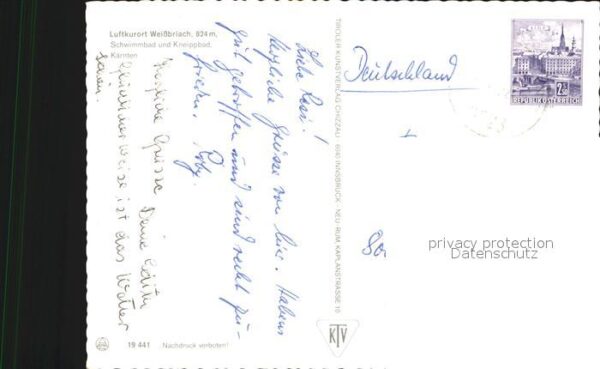 Luftkurort Weißbriach, 824 m,
Schwimmbad und Kneippbad,
Kärnten
Liebe Rosi!
Herzliche Grüsse von hier. Haben
gut getroffen und sind recht zu-
frieden.
Herzliche Grüsse Deine Edith
Glücklicherweise ist das Wetter
schön
19 441 Nachdruck verboten!
TIROLER KUNSTVERLAG CHIZZALI · 6010 INNSBRUCK - NEU RUM, KAPLANSTRASSE 10
KTV
Deutschland
REPUBLIK ÖSTERREICH
80
privacy protection
Datenschutz